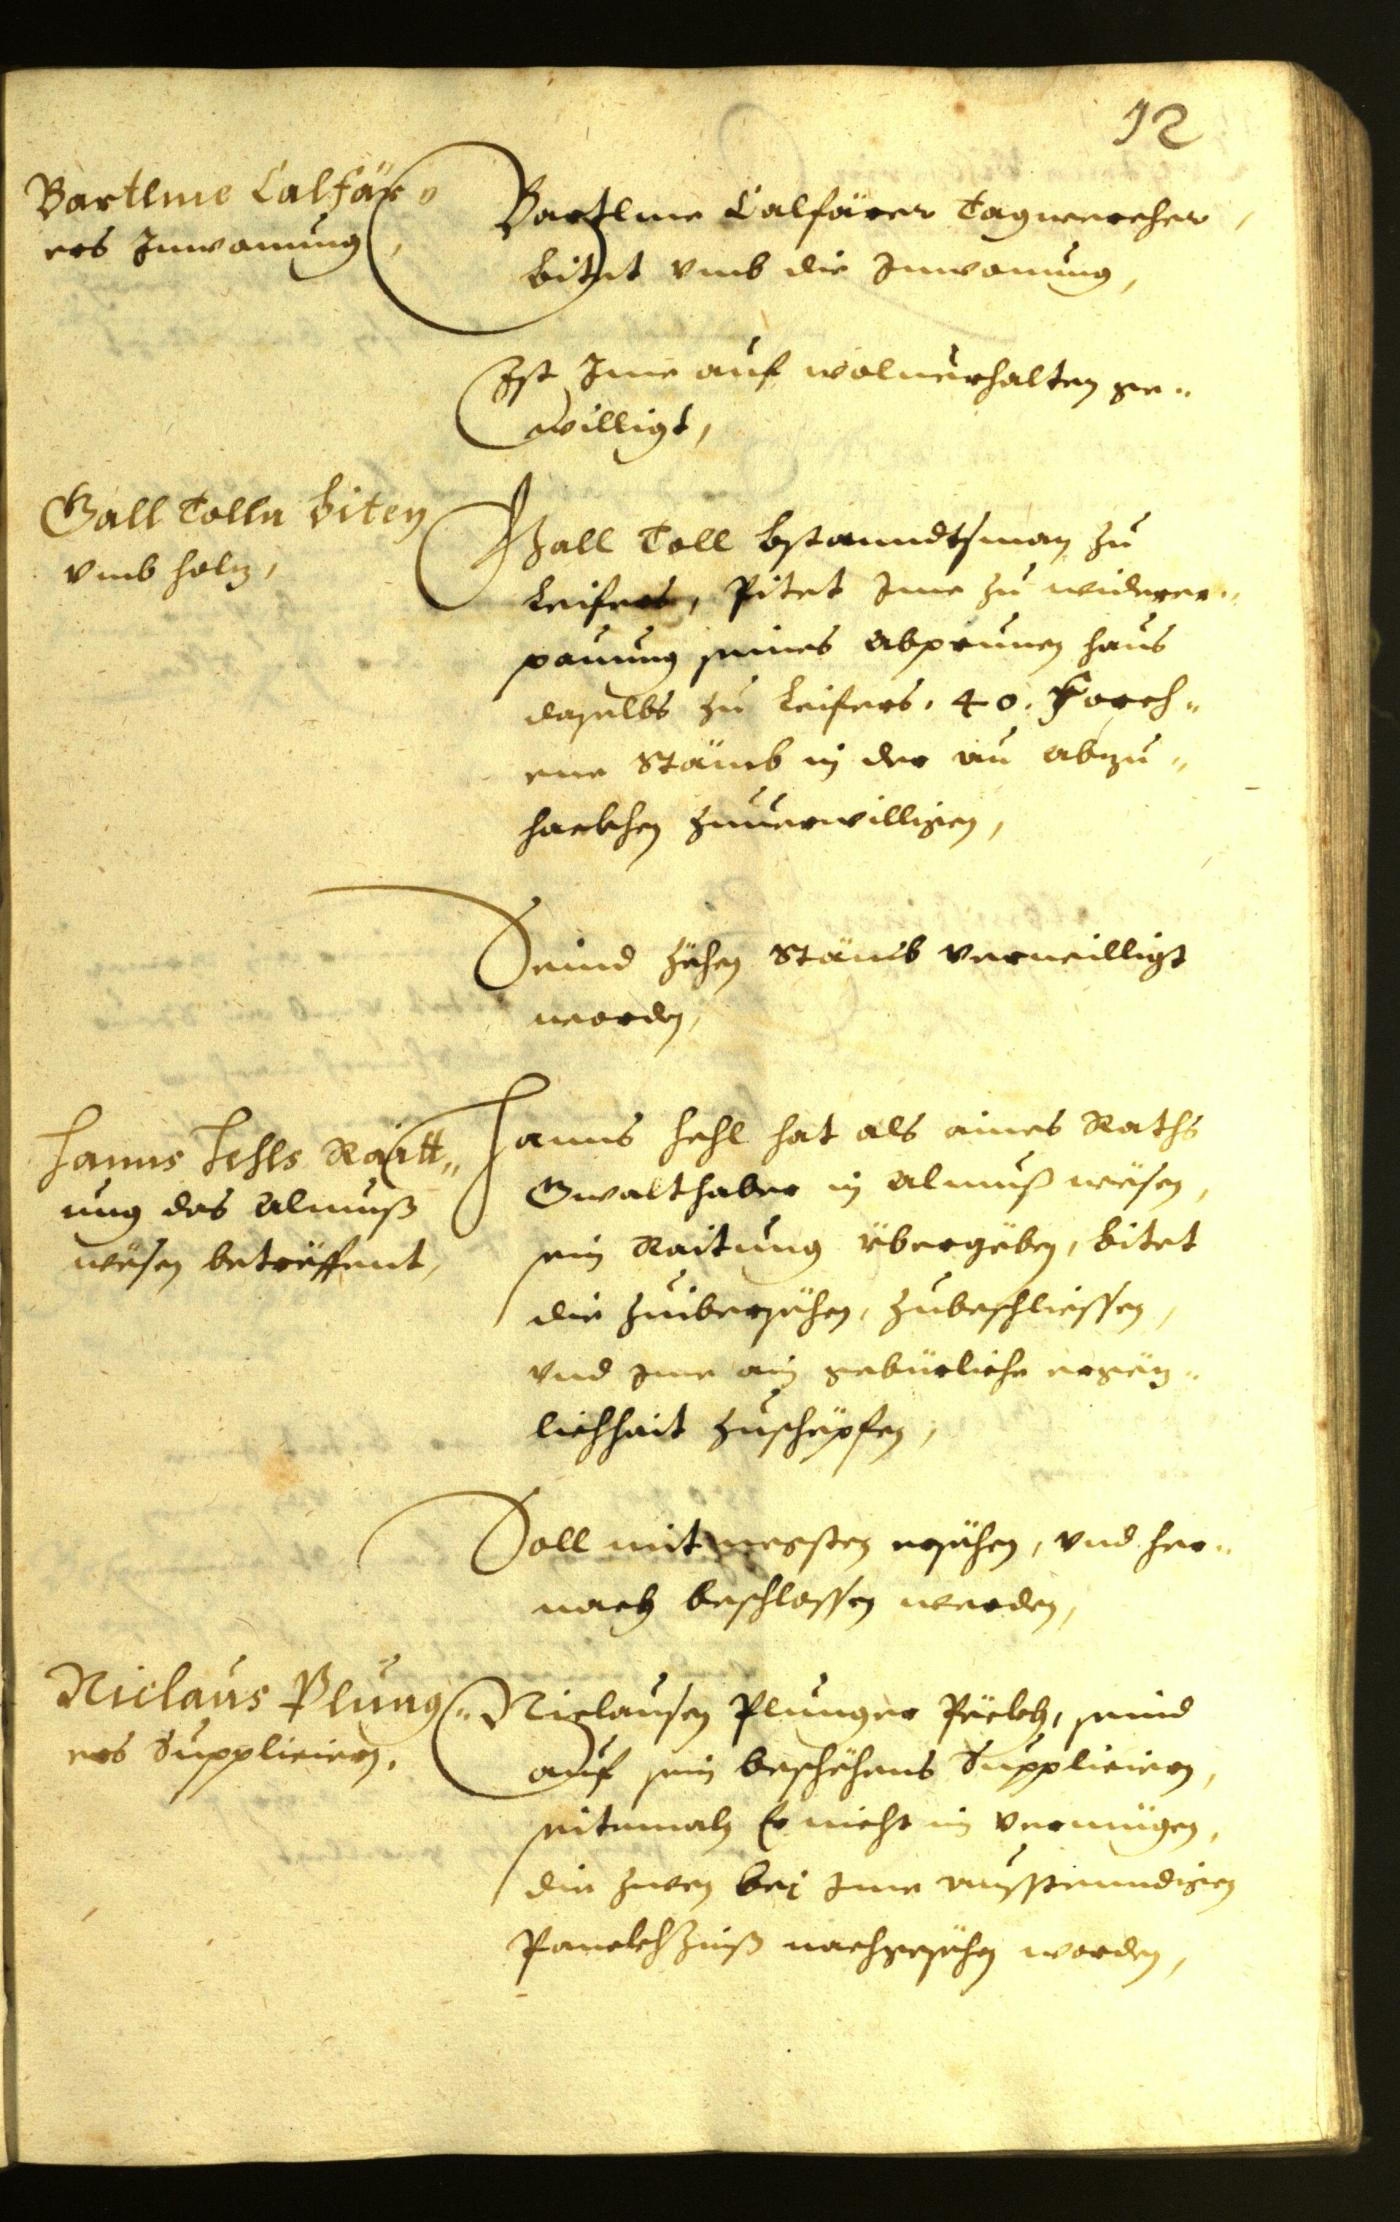 12
Bartlme Calfär„
ers Inwonung,
Bartlme Calfärer Tagwercher,
bitet vmb die Inwonung,
Ist Ime auf wolverhalten ge„
willigt,
Gall Tolln biten
vmb holz,
Gall Toll bstanndtsman zu
Leifers, Pitet Ime zu widerer„
pauung seines abprunen haus
daselbs zu Leifers, 40. Forch„
ene Stämb in der au abzu„
hackhen zuuerwilligen,
Seind zehen Stämb verwilligt
worden,
Hanns Hehls Raitt„
ung das Almuß
wesen betreffent,
Hanns Hehl hat als aines Raths
Gwalthaber in Almuß wesen,
sein Raitung übergeben, bitet
die zuibersehen, zubeschliessen,
vnd Ime ain gebürliche ergez„
lichhait zuschepfen,
Soll mit negsten ersehen, vnd her„
nach beschlossen werden,
Niclaus Plung„
ers Supplicirn.
Niclausen Plunger Peckh, seind
auf sein beschehens Supplicirn,
seitemaln Er nicht in vermügen,
die zwen bej Ime ausstendigen
Panckhzinß nachgesehen worden,